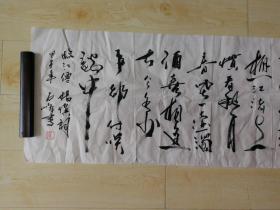 樵江渚上
惯看秋月
春风一壶浊
酒喜相逢
古今多少
事都付笑
谈中
临江仙 杨慎词
甲午年